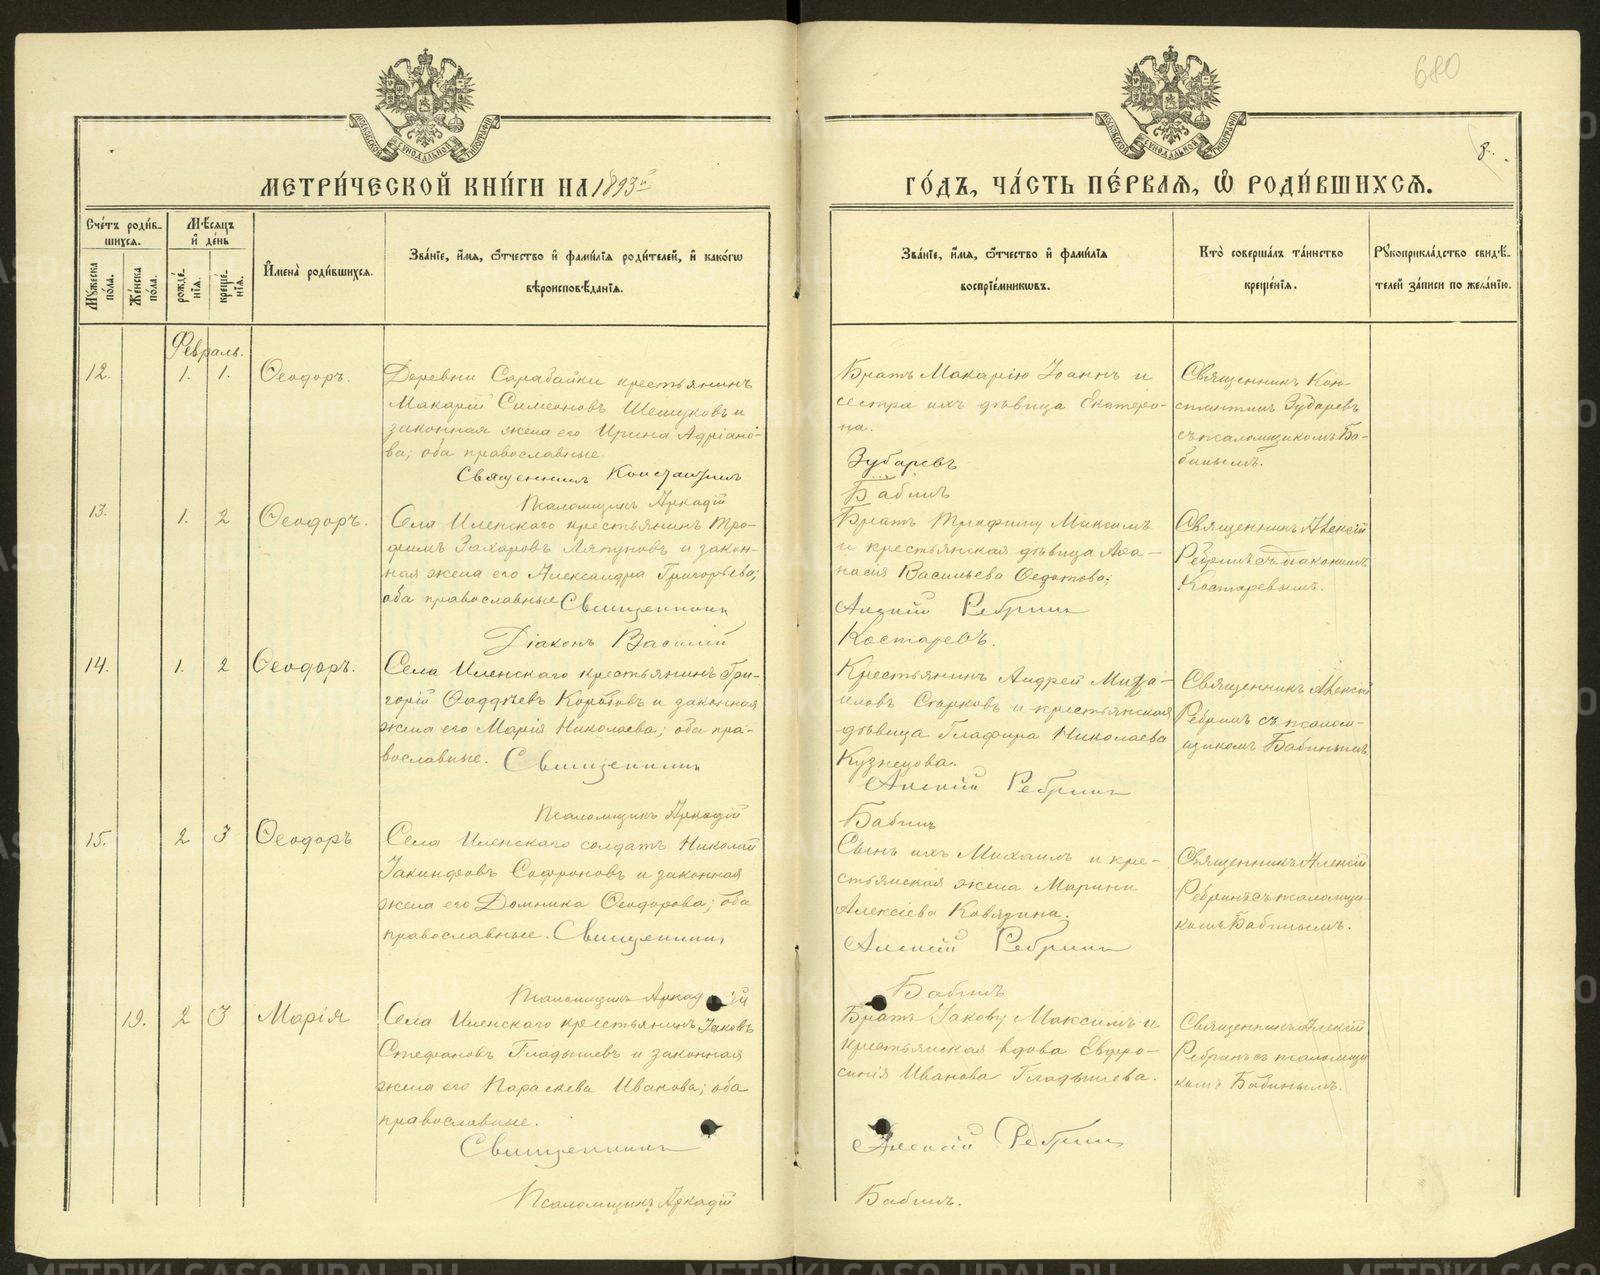 680
8.
МОСКОВСКОЙ СѴНОДАЛЬНОЙ ТИПОГРАФІИ
МОСКОВСКОЙ СѴНОДАЛЬНОЙ ТИПОГРАФІИ
МЕТРИ́ЧЕСКОЙ КНИ́ГИ НА 1893й
ГО́ДЪ, ЧА́СТЬ ПЕ́РВАЯ, Ѽ РОДИ́ВШИХСЯ.
Сче́тъ роди́в-
шихся.
Мѣ́сяцъ
и де́нь
Мꙋ́жеска
по́ла.
Же́нска
по́ла.
рожде́-
нїя.
креще́-
нїя.
Имена̀ роди́вшихся.
Зва́нїе, и́мя, ѻ́тчество и фами́лїя роди́телей, и како́гѡ
вѣроисповѣ́данїя.
Зва́нїе, и́мя, ѻ́тчество и фами́лїя
воспрїе́мникѡвъ.
Кто̀ соверша́лъ та́инство
креще́нїя.
Рꙋкоприкла́дство свидѣ́-
телей за́писи по жела́нїю.
Февраль.
12.
1.
1.
Ѳеодоръ.
Деревни Сарабайки крестьянинъ
Макарій Симеоновъ Шешуковъ и
законная жена его Ирина Адріано-
ва; оба православные
Священникъ Константинъ
Псаломщикъ Аркадій
Братъ Макарію Іоаннъ и
сестра ихъ дѣвица Екатери-
на.
Зубаревъ
Бабинъ
Священникъ Кон-
стантинъ Зубаревъ
съ псаломщикомъ Ба-
бинымъ.
13.
1.
2
Ѳеодоръ.
Села Иленскаго крестьянинъ Тро-
фимъ Захаровъ Ляпуновъ и закон-
ная жена его Александра Григорьева;
оба православные Священникъ
Діаконъ Василій
Братъ Трофиму Максимъ
и крестьянская дѣвица Аѳа-
насія Васильева Ѳедотова;
Алексій Ребринъ
Костаревъ.
Священникъ Алексій
Ребринъ съ діакономъ
Костаревымъ.
14.
1.
2
Ѳеодоръ.
Села Иленскаго крестьянинъ Гри-
горій Ѳаддѣевъ Коробовъ и законная
жена его Марія Николаева; оба пра-
вославные. Священникъ
Псаломщикъ Аркадій
Крестьянинъ Андрей Миха-
иловъ Старковъ и крестьянская
дѣвица Глафира Николаева
Кузнецова.
Алексій Ребринъ
Бабинъ
Священникъ Алексій
Ребринъ съ псалом-
щикомъ Бабинымъ.
15.
2
3
Ѳеодоръ
Села Иленскаго солдатъ Николай
Іакинфовъ Софроновъ и законная
жена его Домника Ѳеодорова; оба
православные. Священникъ
Псаломщикъ Аркадій
Сынъ ихъ Михаилъ и кре-
стьянская жена Марина
Алексіева Ковязина.
Алексій Ребринъ
Бабинъ
Священникъ Алексій
Ребринъ съ псаломщи-
комъ Бабинымъ.
19.
2
3
Марія
Села Иленскаго крестьянинъ Іаковъ
Стефановъ Гладышевъ и законная
жена его Параскева Иванова; оба
православные.
Священникъ
Псаломщикъ Аркадій
Братъ Іакову Максимъ и
крестьянская вдова Евфро-
синія Иванова Гладышева.
Алексій Ребринъ
Бабинъ.
Священникъ Алексій
Ребринъ съ псаломщи
комъ Бабинымъ.
METRIKI.GASO-URAL.RU